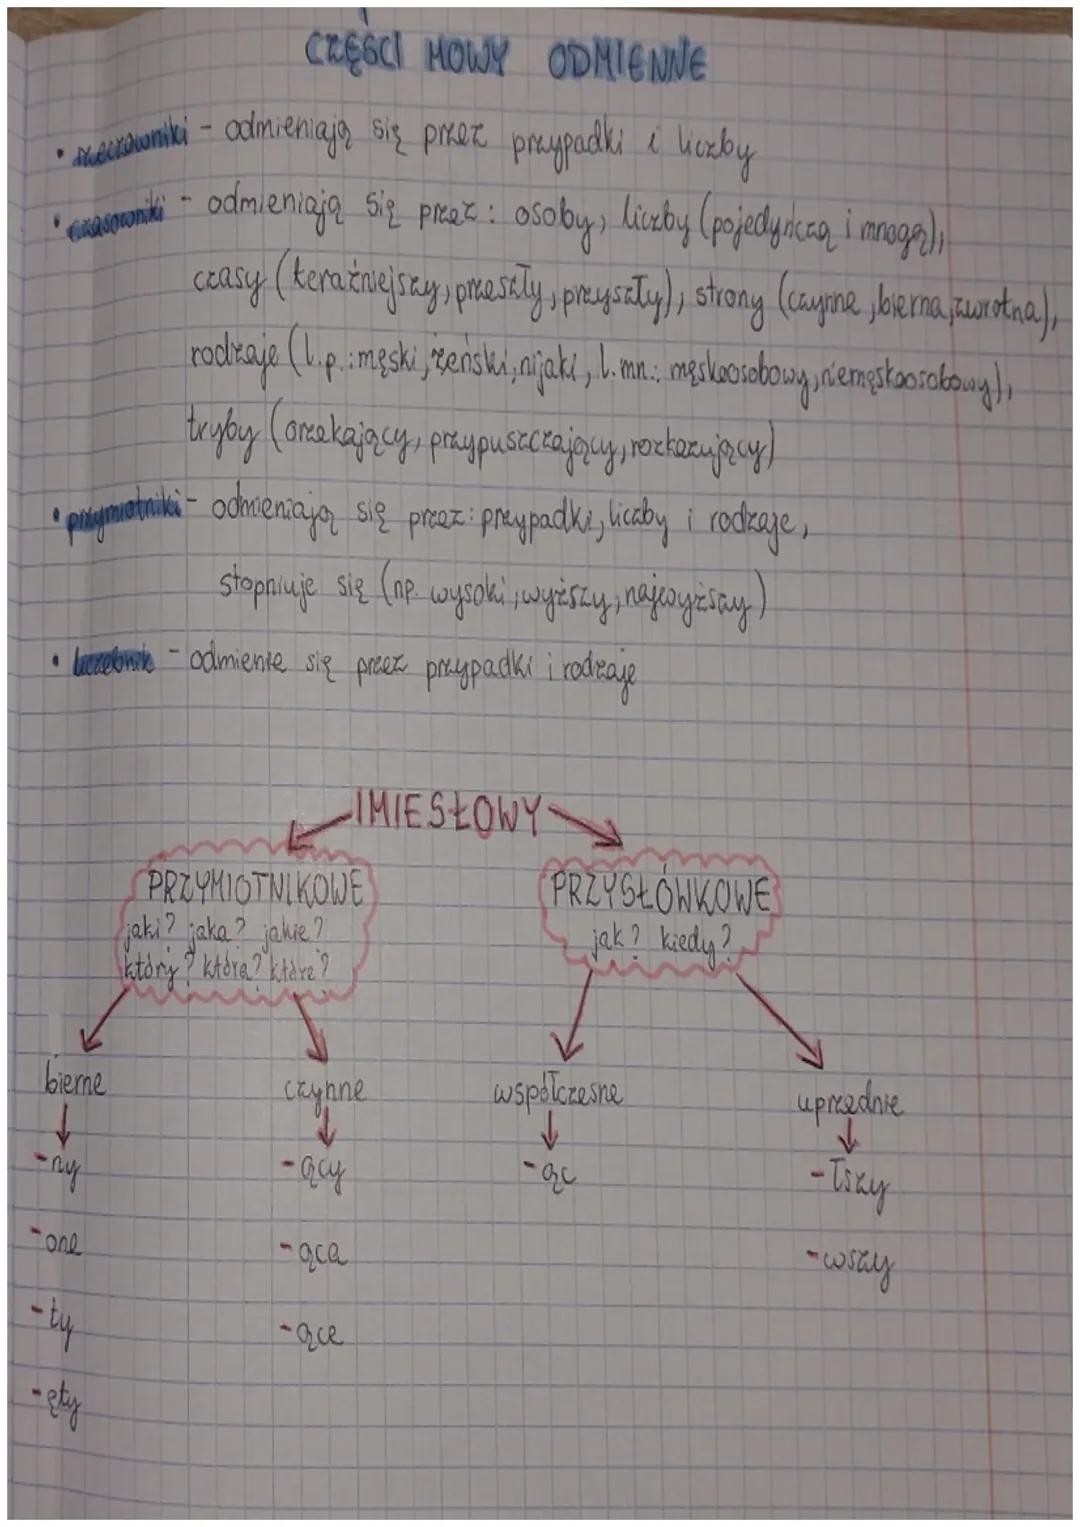 CZĘŚCI MOWY ODMIENNE
• rzeczowniki - odmieniają się przez przypadki i liczby
• czasowniki - odmieniają się przez: osoby, liczby (pojedyńczą i mnogą),
czasy (teraźniejszy, przeszły, przyszły), strony (czynna, bierna, zwrotna),
rodzaje (l.p.: męski, żeński, nijaki, l.mn.: męskoosobowy, niemęskoosobowy),
tryby (orzekający, przypuszczający, rozkazujący)
• przymiotniki - odmieniają się przez: przypadki, liczby i rodzaje,
stopniuje się (np. wysoki, wyższy, najwyższy)
• liczebnik - odmienia się przez przypadki i rodzaje
IMIESŁOWY
PRZYMIOTNIKOWE
jaki? jaka? jakie?
który? która? które?
PRZYSŁÓWKOWE
jak? kiedy?
bierne czynne współczesne uprzednie
-ny -ący -ąc -łszy
-one -ąca -wszy
-ty -ące
-ęty